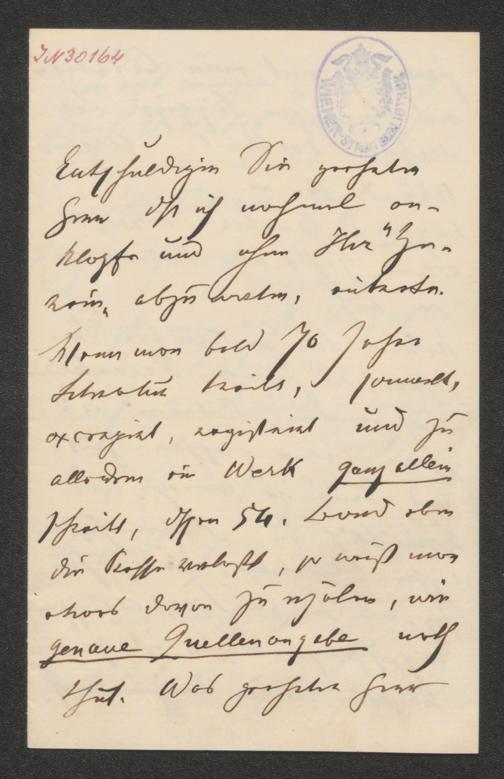 JN 30164
WIENER STADTBIBLIOTHEK
Entschuldigen Sie geehrter
Herr daß ich nochmal an-
klopfe und ohne Ihr "He-
rein" abzuwarten, eintrete.
Wenn man bald 70 Jahre
Literatur treibt, sammelt,
excerpirt, registrirt und zu
alledem ein Werk ganz allein
schreibt, dessen 54. Band eben
die Presse verläßt, so weiß man
etwas davon zu erzälen, wie
genaue Quellenangabe noth
thut. Was geehrter Herr